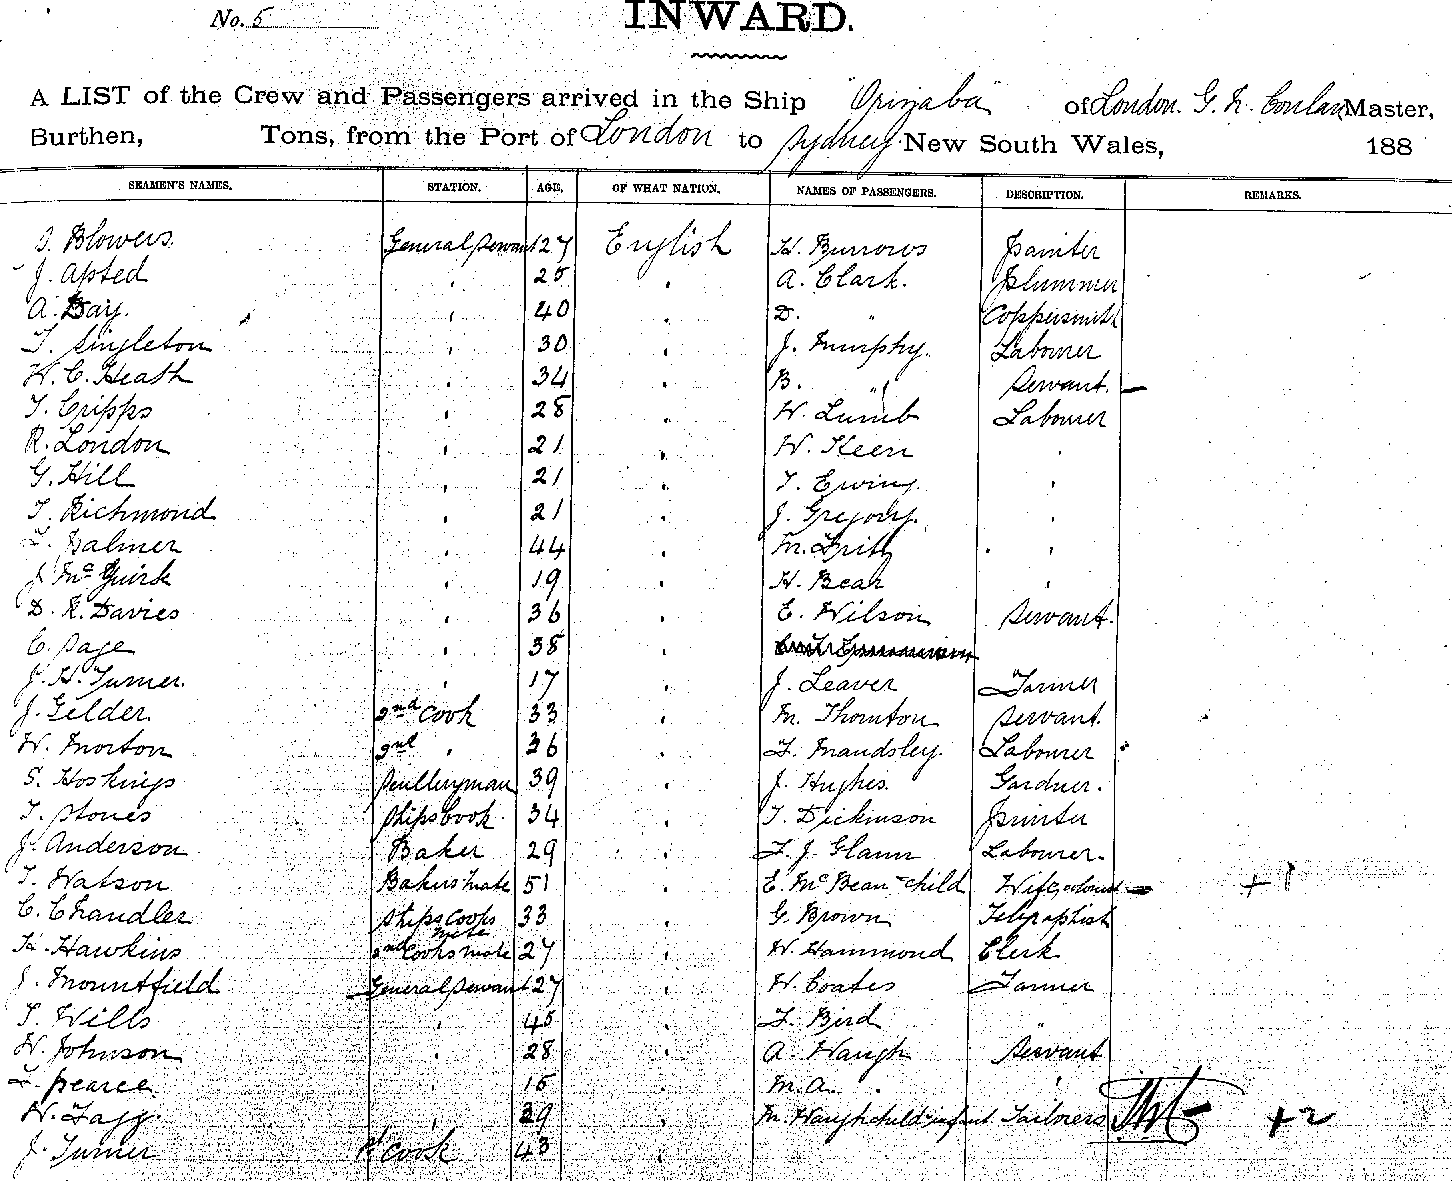 No. 5
INWARD.
A LIST of the Crew and Passengers arrived in the Ship "Orizaba" of London. G. N. Conlan Master,
Burthen, Tons, from the Port of London to Sydney New South Wales, 188
SEAMEN'S NAMES. STATION. AGE, OF WHAT NATION. NAMES OF PASSENGERS. DESCRIPTION. REMARKS.
Blowers. General Servant 27 English H. Burrows Painter
J. Apsted " 25 " A. Clark. Plummer
A. Day. " 40 " D. " Coppersmith
T. Singleton " 30 " J. Murphy. Labourer
W. C. Heath " 34 " B. " Servant. –
T. Cripps " 28 " W. Lumb Labourer
R. London " 21 " W. Keen "
G. Hill " 21 " T. Ewing. "
T. Richmond " 21 " J. Gregory. "
Palmer " 44 " M. "
J. McGuirk " 19 " H. Bear "
D. R. Davies " 36 " E. Wilson Servant.
C. Page " 38 "
J. H. Turner. " 17 " J. Leaver Farmer
J. Gelder. 2nd Cook 33 " M. Thornton Servant.
W. Morton " 36 " F. Maudsley. Labourer
S. Hoskings Sculleryman 39 " J. Hughes. Gardner.
T. Stones Ships Cook 34 " T. Dickinson Painter
J. Anderson Baker 29 " F. J. Glann Labourer.
T. Watson Bakers Mate 51 " E. McBean – child Wife, – + 1
C. Chandler Ships Cooks Mate 33 " G. Brown Telegraphist
H. Hawkins 2nd Cooks Mate 27 " W. Hammond Clerk
J. Mountfield General Servant 27 " W. Coates Farmer
T. Wills " 45 " F. Bird "
W. Johnson " 28 " A. Waugh Servant
F. Pearce " 15 " M. A. " "
W. Fagg. " 29 " M. Waugh child infant Tailoress + 2
J. Turner 1st Cook 43 "